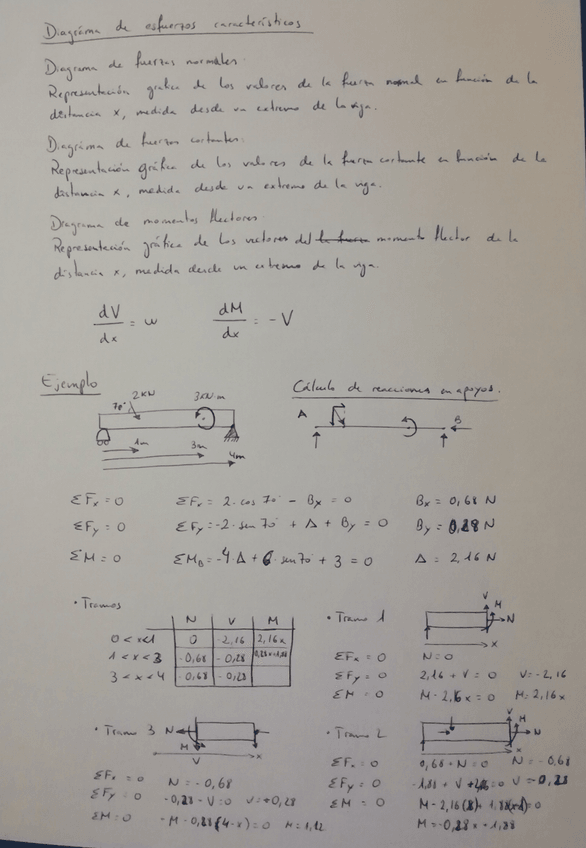 Diagrama de esfuerzos característicos
Diagrama de fuerzas normales:
Representación grafica de los valores de la fuerza normal en función de la
distancia x, medida desde un extremo de la viga.
Diagrama de fuerzas cortantes:
Representación gráfica de los valores de la fuerza cortante en función de la
distancia x, medida desde un extremo de la viga.
Diagrama de momentos flectores:
Representación gráfica de los vectores del momento flector de la
distancia x, medida desde un extremo de la viga
dV/dx = w   dM/dx = -V
Ejemplo
Cálculo de reacciones en apoyos.
2KN 3KN·m
70°
1m
3m
4m
A B
ΣFx = 0   ΣFx = 2·cos 70° - Bx = 0   Bx = 0,68 N
ΣFy = 0   ΣFy = -2·sen 70° + A + By = 0   By = 0,28 N
ΣM = 0   ΣMB = -4·A + 6·sen 70 + 3 = 0   A = 2,16 N
• Tramos
N V M
0 < x < 1   0   -2,16   2,16x
1 < x < 3   -0,68   -0,28
3 < x < 4   -0,68   -0,28
• Tramo 1
V
M
N
x
ΣFx = 0   N = 0
ΣFy = 0   2,16 + V = 0   V = -2,16
ΣM = 0   M - 2,16x = 0   M = 2,16x
• Tramo 3 N
M
V
x
ΣFx = 0   N = -0,68
ΣFy = 0   -0,28 - V = 0   V = -0,28
ΣM = 0   -M - 0,28(4-x) = 0   M = 1,12
• Tramo 2
V
M
N
x
ΣFx = 0   0,68 + N = 0   N = -0,68
ΣFy = 0   -1,88 + V + 2,16 = 0   V = 0,28
ΣM = 0